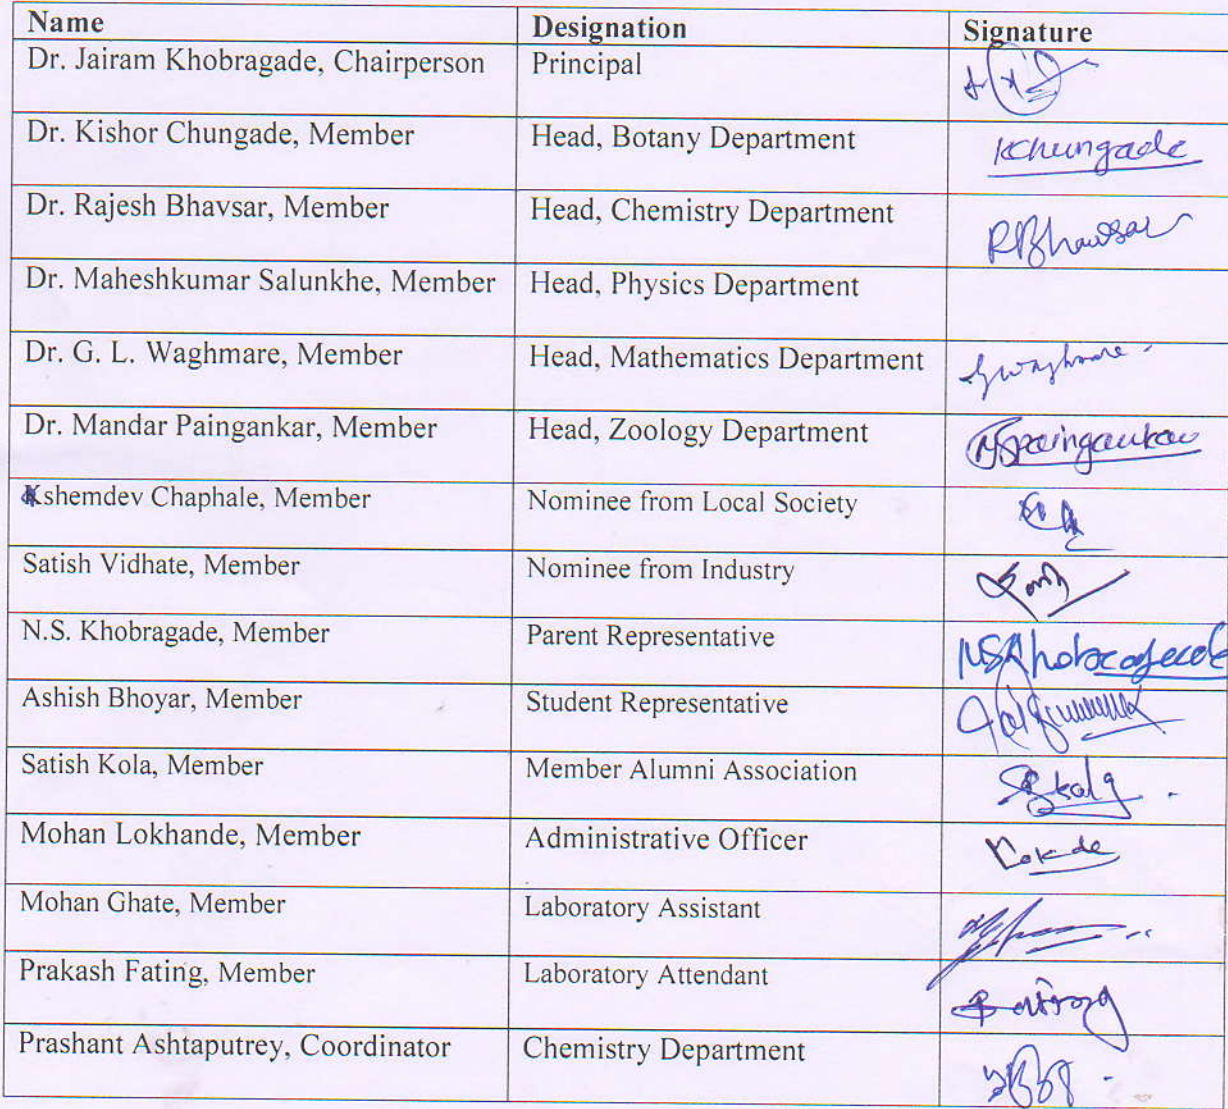 Name Designation Signature
Dr. Jairam Khobragade, Chairperson Principal
Dr. Kishor Chungade, Member Head, Botany Department KChungade
Dr. Rajesh Bhavsar, Member Head, Chemistry Department RBhavsar
Dr. Maheshkumar Salunkhe, Member Head, Physics Department
Dr. G. L. Waghmare, Member Head, Mathematics Department Gwaghmare
Dr. Mandar Paingankar, Member Head, Zoology Department MSPaingankar
Kshemdev Chaphale, Member Nominee from Local Society
Satish Vidhate, Member Nominee from Industry
N.S. Khobragade, Member Parent Representative NSKhobragade
Ashish Bhoyar, Member Student Representative
Satish Kola, Member Member Alumni Association
Mohan Lokhande, Member Administrative Officer
Mohan Ghate, Member Laboratory Assistant
Prakash Fating, Member Laboratory Attendant
Prashant Ashtaputrey, Coordinator Chemistry Department